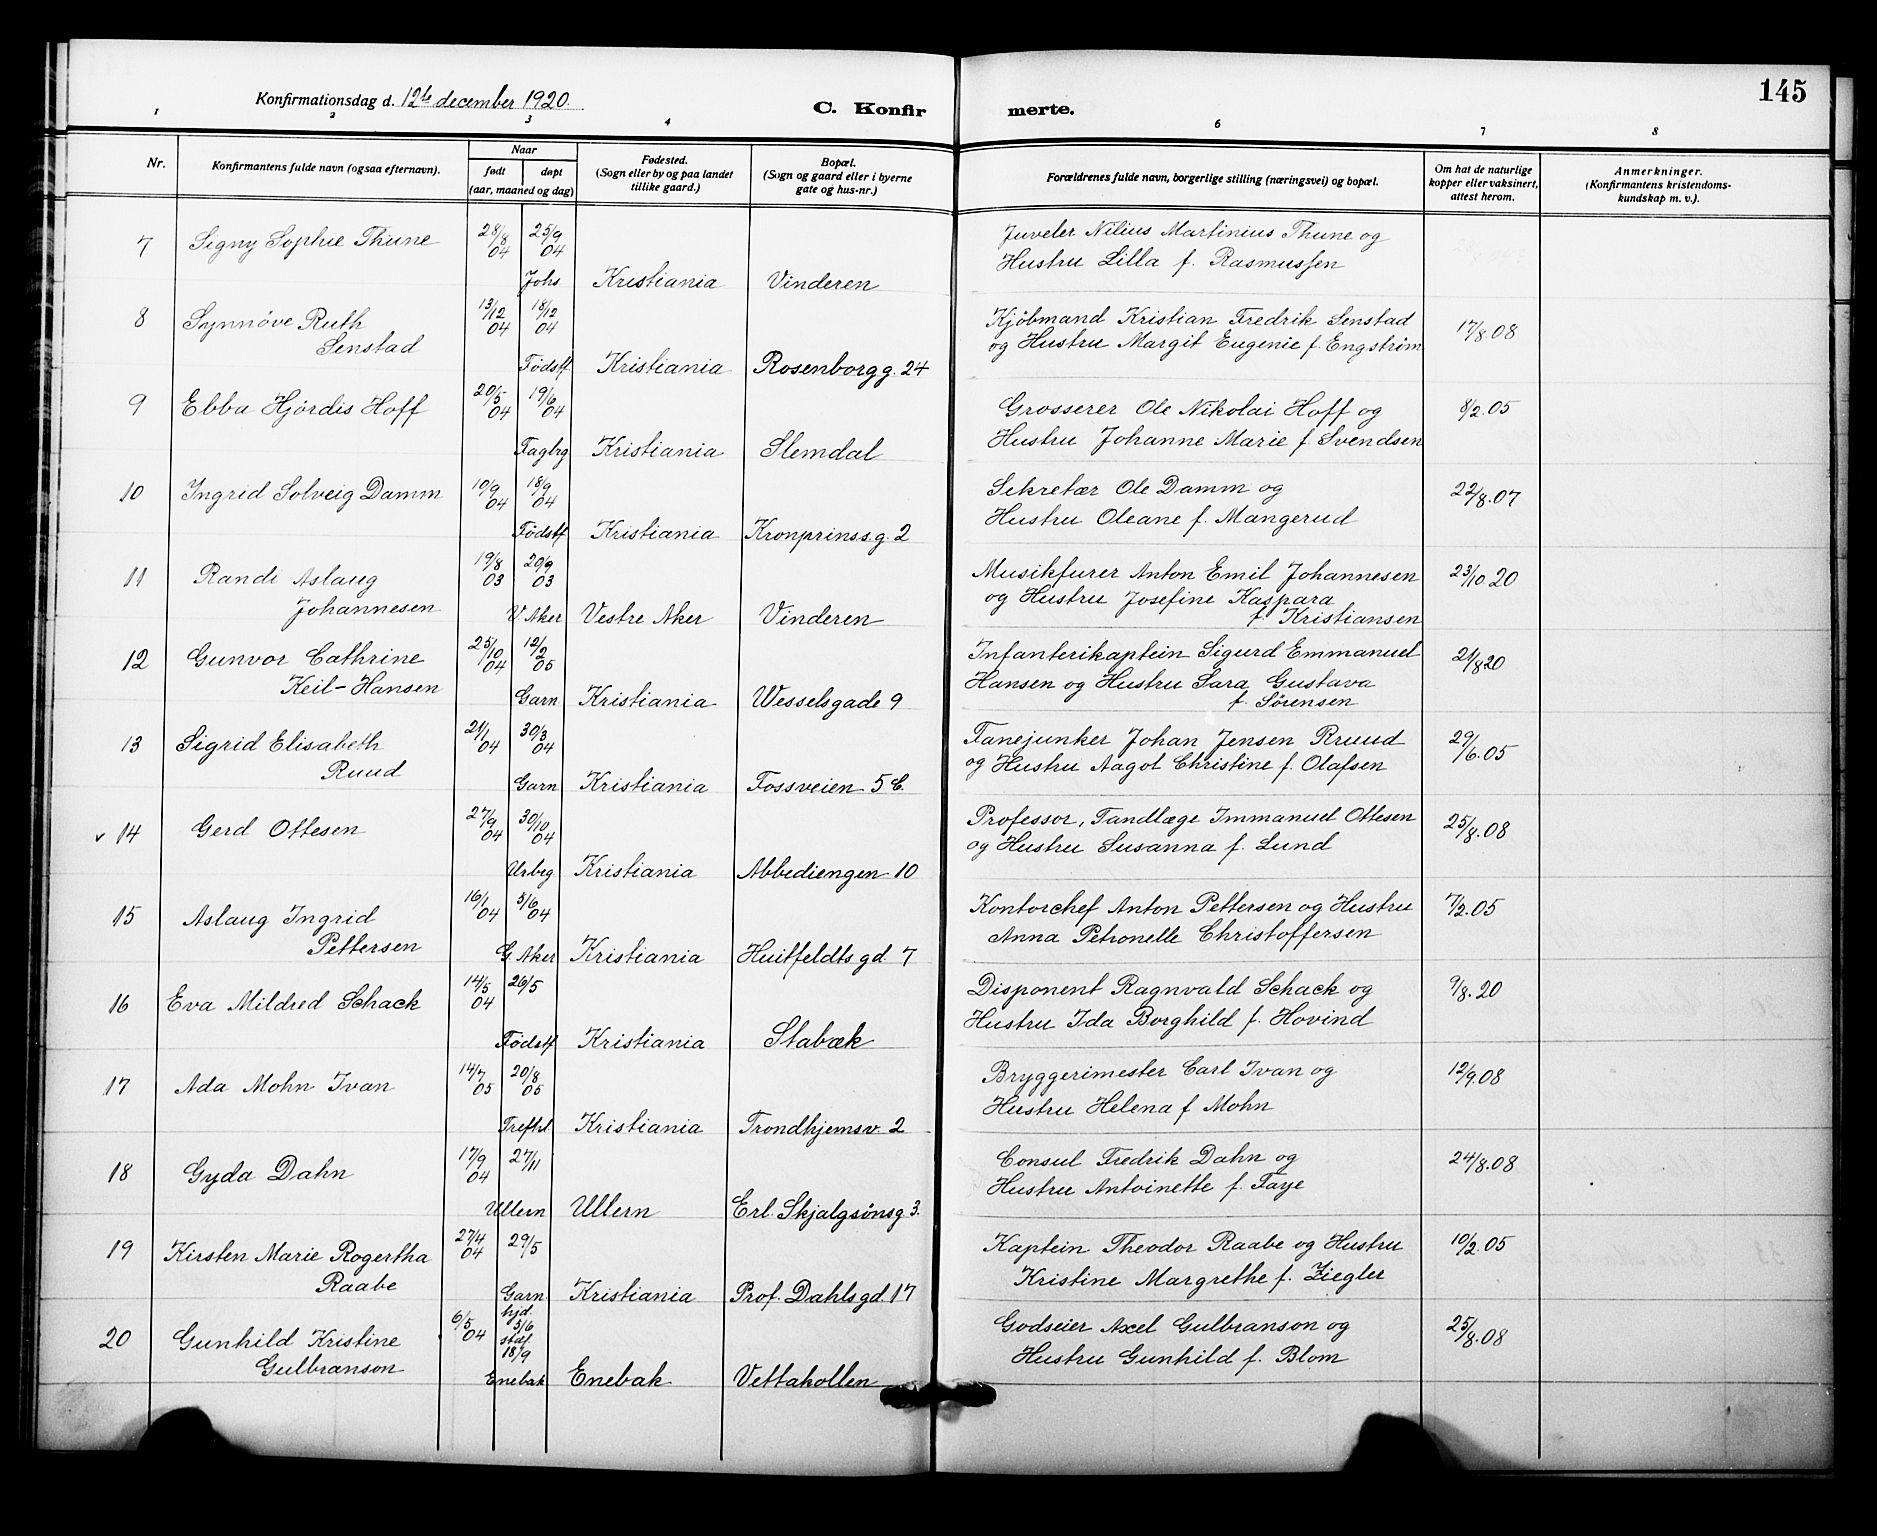 145
Konfirmationsdag d. 12te december 1920.
C. Konfir
merte.
1 2 3 4 6 7 8
Nr.
Konfirmantens fulde navn (ogsaa efternavn).
Naar
født
døpt
(aar, maaned og dag)
Fødested.
(Sogn eller by og paa landet
tillike gaard.)
Bopæl.
(Sogn og gaard eller i byerne
gate og hus-nr.)
Forældrenes fulde navn, borgerlige stilling (næringsvei) og bopæl.
Om hat de naturlige
kopper eller vaksinert,
attest herom.
Anmerkninger.
(Konfirmantens kristendoms-
kundskap m. v.).
7 Signy Sophie Thune 28/8 04 25/9 04
Johs Kristiania Vinderen
Juveler Nilius Martinius Thune og
Hustru Lilla f. Rasmussen
8 Synnöve Ruth
Senstad 13/12 04 18/12 04
Födstf Kristiania Rosenborgg. 24
Kjöbmand Kristian Fredrik Senstad
og Hustru Margit Eugenie f. Engström
17/8.08
9 Ebba Hjördis Hoff 20/5 04 19/6 04
Fagbg Kristiania Slemdal
Grosserer Ole Nikolai Hoff og
Hustru Johanne Marie f. Svendsen
8/2.05
10 Ingrid Solveig Damm 10/9 04 18/9 04
Födstf Kristiania Kronprinss.g. 2
Sekretær Ole Damm og
Hustru Oleane f. Mangerud
22/8.07
11 Randi Aslaug
Johannesen 19/8 03 20/9 03
V. Aker Vestre Aker Vinderen
Musikfurer Anton Emil Johannesen
og Hustru Josefine Kaspara
f. Kristiansen
23/10 20
12 Gunvor Cathrine
Keil-Hansen 25/10 04 12/2 05
Garn Kristiania Wesselsgade 9
Infanterikaptein Sigurd Emmanuel
Hansen og Hustru Sara Gustava
f. Sörensen
21/8 20
13 Sigrid Elisabeth
Ruud 21/1 04 30/3 04
Garn Kristiania Fossveien 5 C.
Fanejunker Johan Jensen Rruud
og Hustru Aagot Christine f. Olafsen
29/6.05
v 14 Gerd Ottesen 27/9 04 30/10 04
Urbeg Kristiania Abbediengen 10
Professor, Tandlæge Immanuel Ottesen
og Hustru Susanna f. Lund
25/8.08
15 Aslaug Ingrid
Pettersen 16/1 04 5/6 04
G Aker Kristiania Huitfeldts gd. 7
Kontorchef Anton Pettersen og Hustru
Anna Petronelle Christoffersen
7/2.05
16 Eva Mildred Schack 14/5 04 26/5
Födstf Kristiania Stabæk
Disponent Ragnvald Schack og
Hustru Ida Borghild f. Hovind
9/8.20
17 Ada Mohn Ivan 14/7 05 20/8 05
Trefht Kristiania Trondhjemsv. 2
Bryggerimester Carl Ivan og
Hustru Helena f Mohn
12/9.08
18 Gyda Dahn 17/9 04 27/11
Ullern Ullern Erl. Skjalgsönsg 3.
Consul Fredrik Dahn og
Hustru Antoinette f. Faye
24/8.08
19 Kirsten Marie Rogertha
Raabe 27/4 04 29/5
Garn Kristiania Prof. Dahls gd. 17
Kaptein Theodor Raabe og Hustru
Kristine Margrethe f. Ziegler
10/2.05
20 Gunhild Kristine
Gulbranson 6/5 04 hjd. 5/6 stæf. 18/9
Enebak Enebak Vettakollen
Godseier Axel Gulbranson og
Hustru Gunhild f. Blom
25/8.08